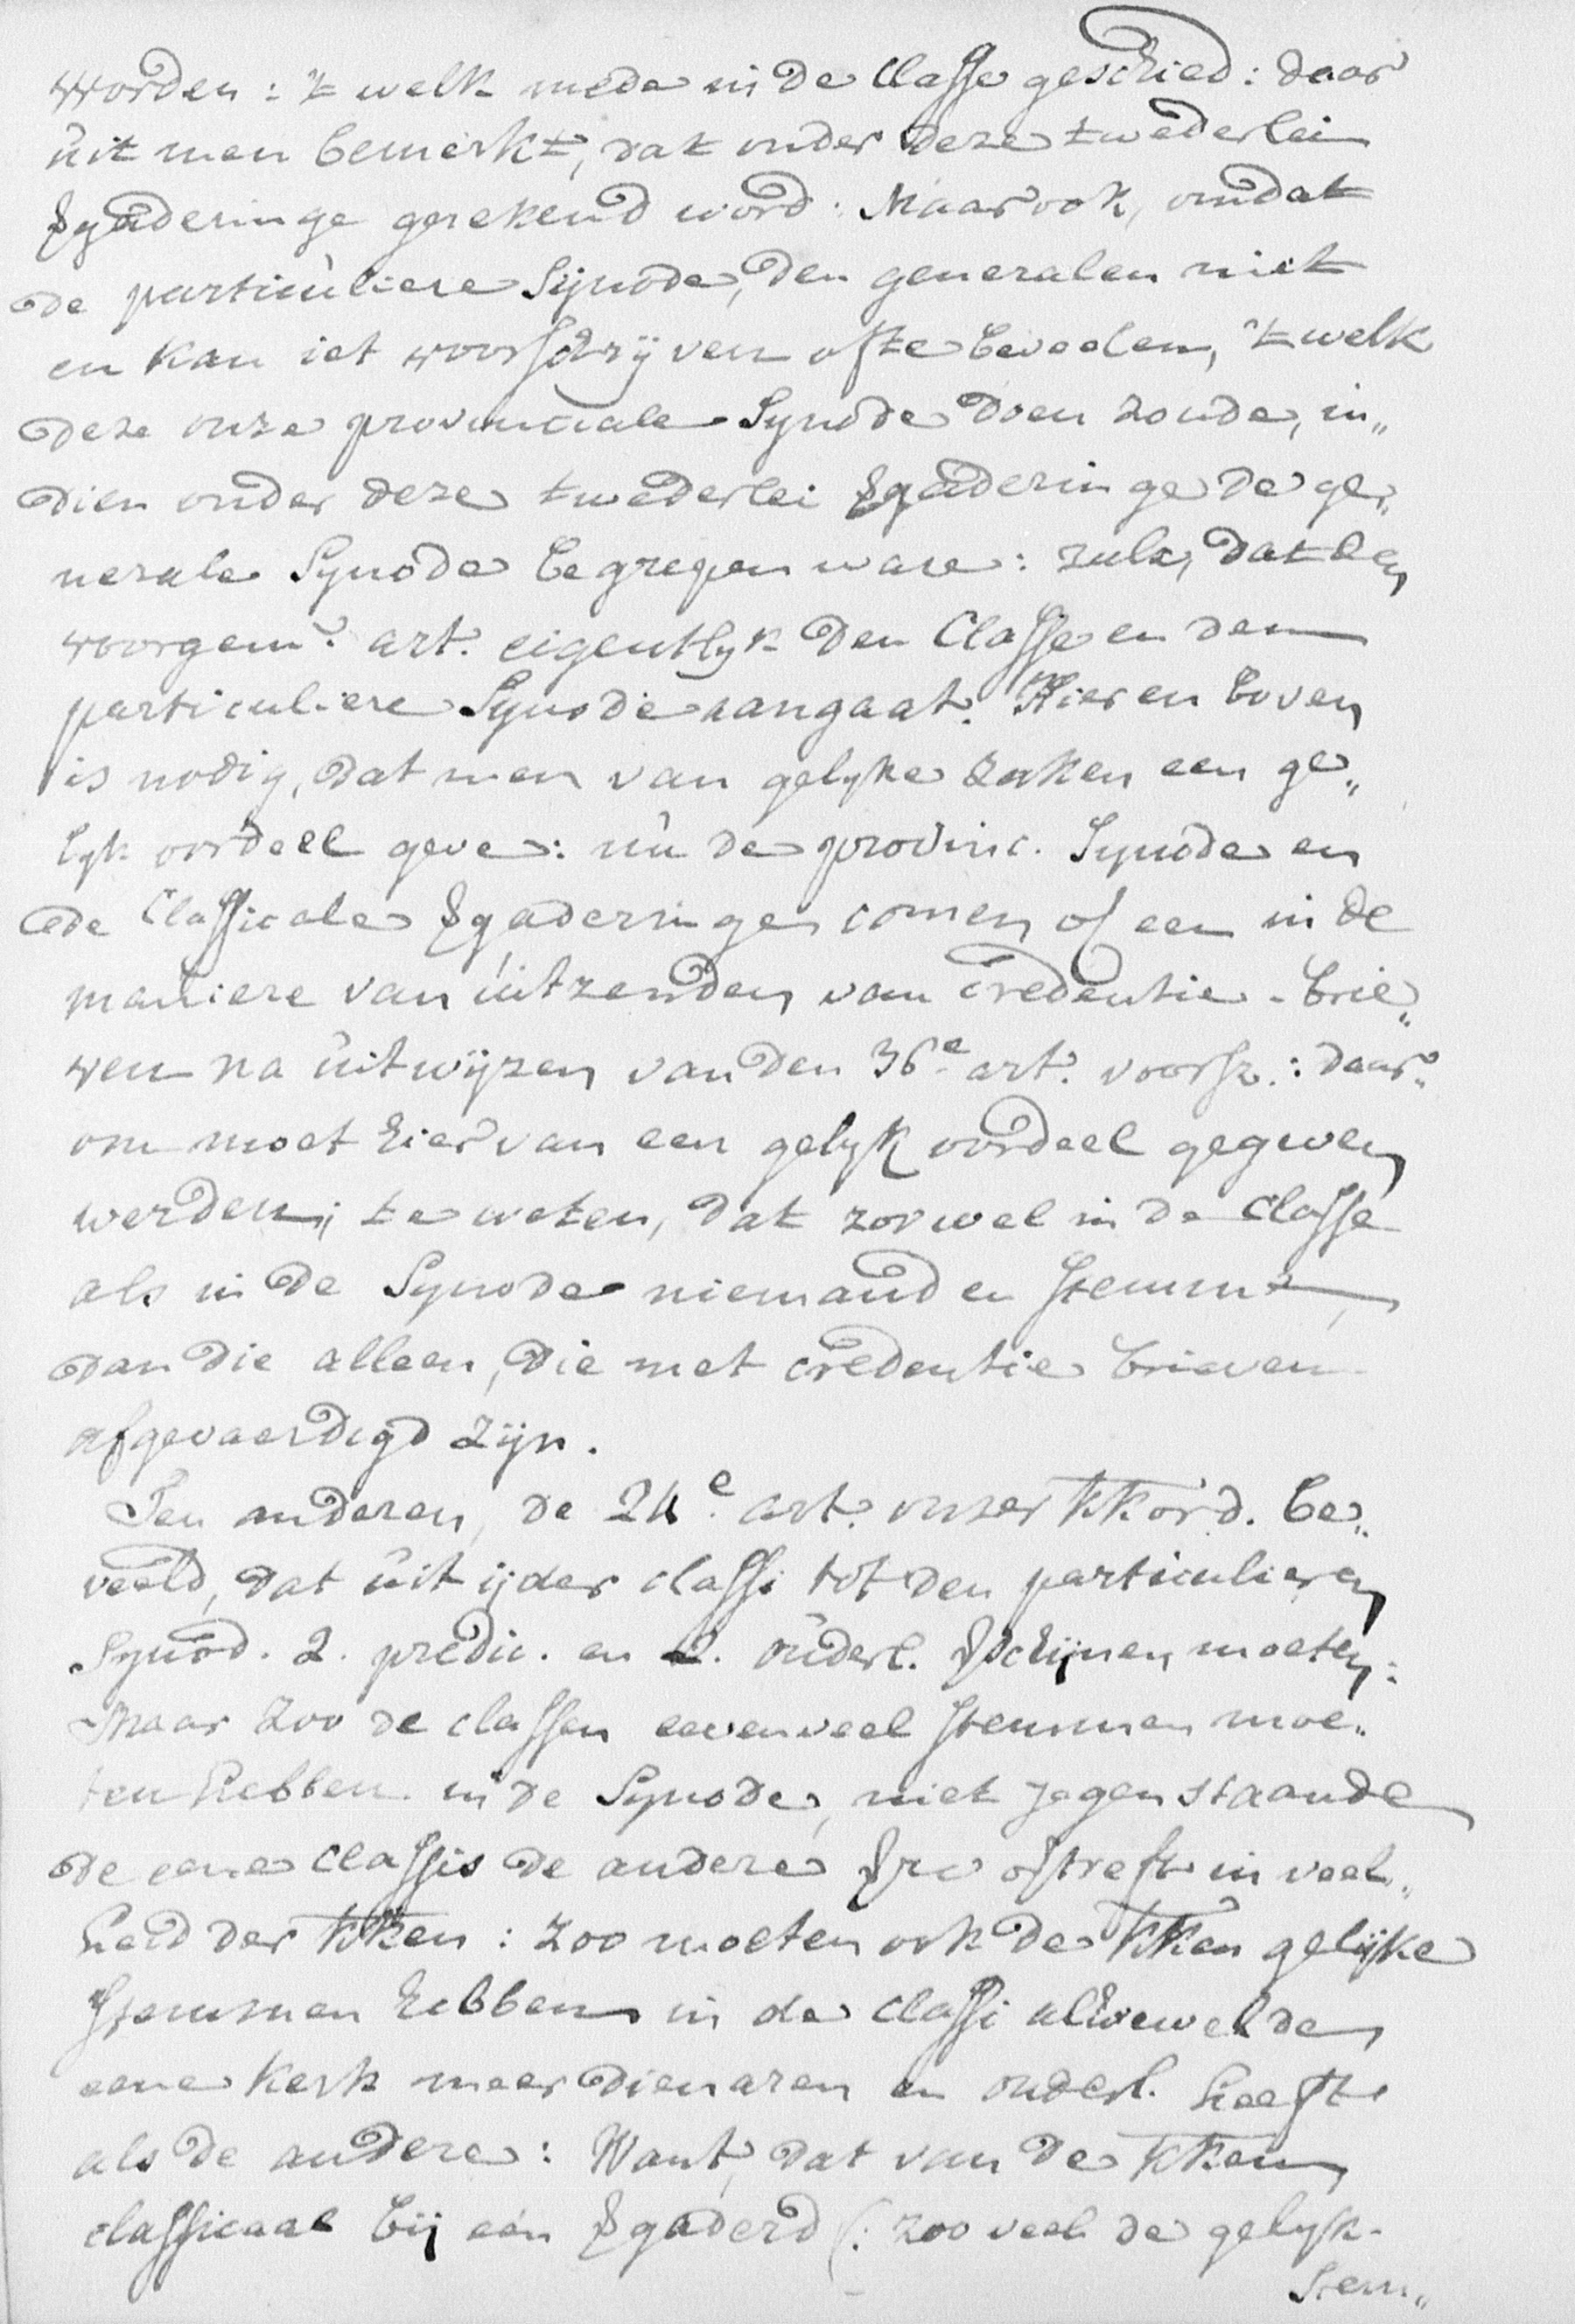 worden: 't welk mede in de Classe geschied: daar
uit men bemerkt, dat onder deze twederlei
Vgaderinge gerekend word. Maar ook, omdat
de particuliere Sijnode, den generalen niet
en kan iet voorschrijven ofte bevelen, 't welk
deze onze provinciale Synode doen zoude, in„
dien onder deze twederlei Vgaderinge de ge„
nerale Synode begrepen ware: zulx, dat den
voorgem. art. eigentlyk den Classe en den
particuliere Synode aangaat. Hier en boven
is nodig, dat men van gelyke zaken een ge„
lyk oordeel geve: nu de provinc. Synode en
de Classicale Vgaderingen comen of een in de
maniere van uitzenden van credentie-brie„
ven na uitwijzen van den 36e art. voorsz.: daar„
om moet hier van een gelyk oordeel gegeven
werden; te weten, dat zoo wel in de Classe
als in de Synode niemand en stemme,
dan die alleen, die met credentie brieven
afgevaerdigd zijn.
Ten anderen, de 24e art. onser KKord. be„
veeld, dat uit ijder classi tot den particulieren
Synod. 2. predic. en 2. ouderl. Vschijnen moeten:
Maar zoo de classen eevenveel stemmen moe„
ten hebben in de Synode, niet jegenstaande
de eene classis de andere Vre oftreft in veel„
heid der KKen: zoo moeten ook de KKen gelijke
stemmen hebben in de classi alhoewel de
eene Kerk meer Dienaren en ouderl. heeft
als de andere: Want, dat van de KKen
classicaal bij een Vgaderd (: zoo veel de gelyk-
stem„